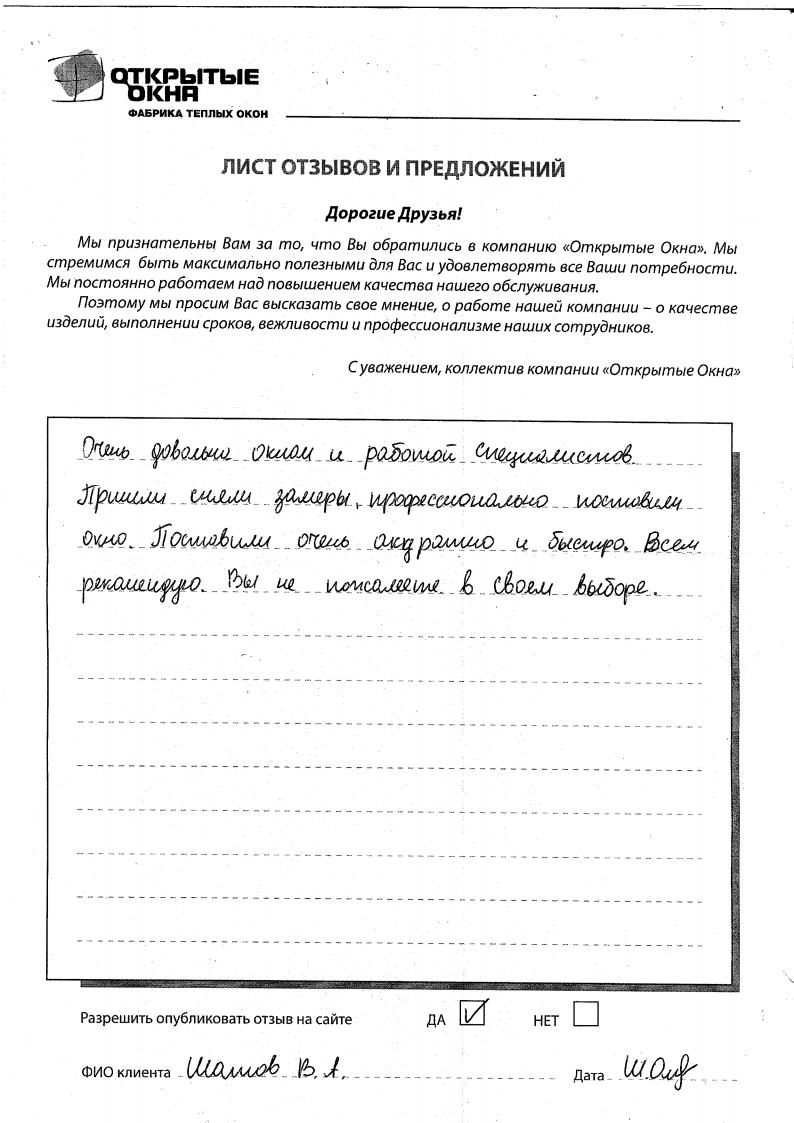 ОТКРЫТЫЕ
ОКНА
ФАБРИКА ТЕПЛЫХ ОКОН
ЛИСТ ОТЗЫВОВ И ПРЕДЛОЖЕНИЙ
Дорогие Друзья!
Мы признательны Вам за то, что Вы обратились в компанию «Открытые Окна». Мы
стремимся быть максимально полезными для Вас и удовлетворять все Ваши потребности.
Мы постоянно работаем над повышением качества нашего обслуживания.
Поэтому мы просим Вас высказать свое мнение, о работе нашей компании – о качестве
изделий, выполнении сроков, вежливости и профессионализме наших сотрудников.
С уважением, коллектив компании «Открытые Окна»
Очень довольна окном и работой специалистов.
Пришли сняли замеры, профессионально поставили
окно. Поставили очень аккуратно и быстро. Всем
рекомендую. Вы не пожалеете в своем выборе.
Разрешить опубликовать отзыв на сайте ДА НЕТ
ФИО клиента В. А. Дата